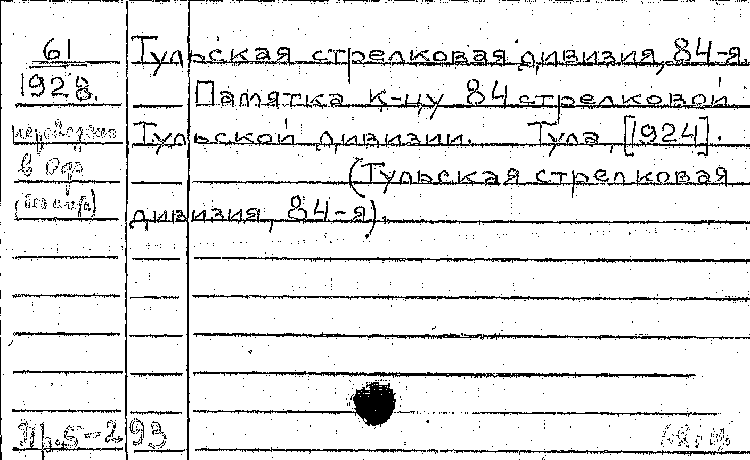 61
1928.
Тульская стрелковая дивизия, 84-я.
Памятка к-цу 84 стрелковой
Тульской дивизии. Тула, [1924].
(Тульская стрелковая
дивизия, 84-я).
в
293